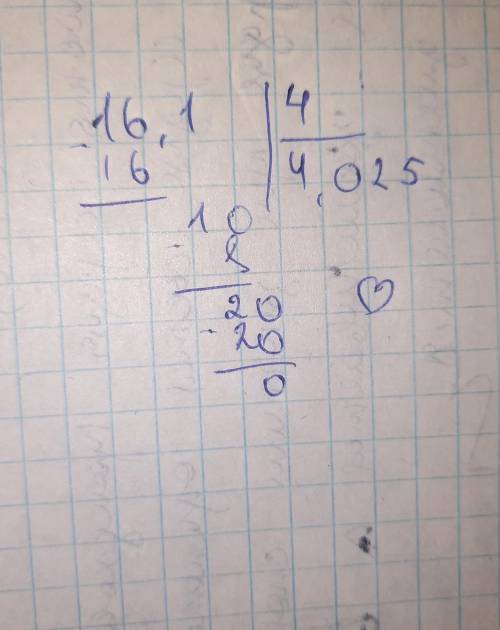 16,1 4
16 4,025
10
8
20
20
0